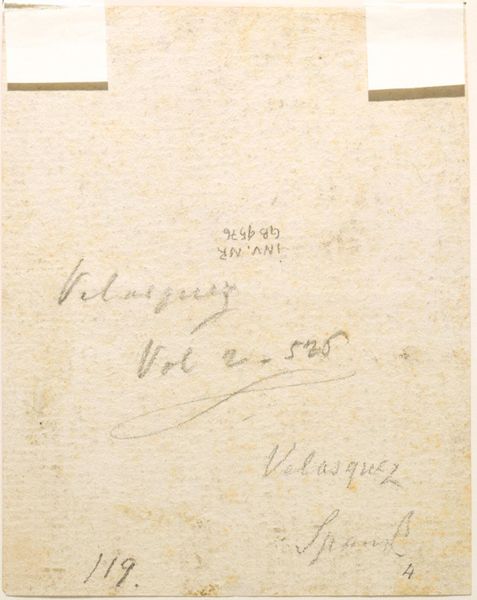 INV. NR
GB 9576
Velasquez
Vol 2 - 526
Velasquez
119.
4